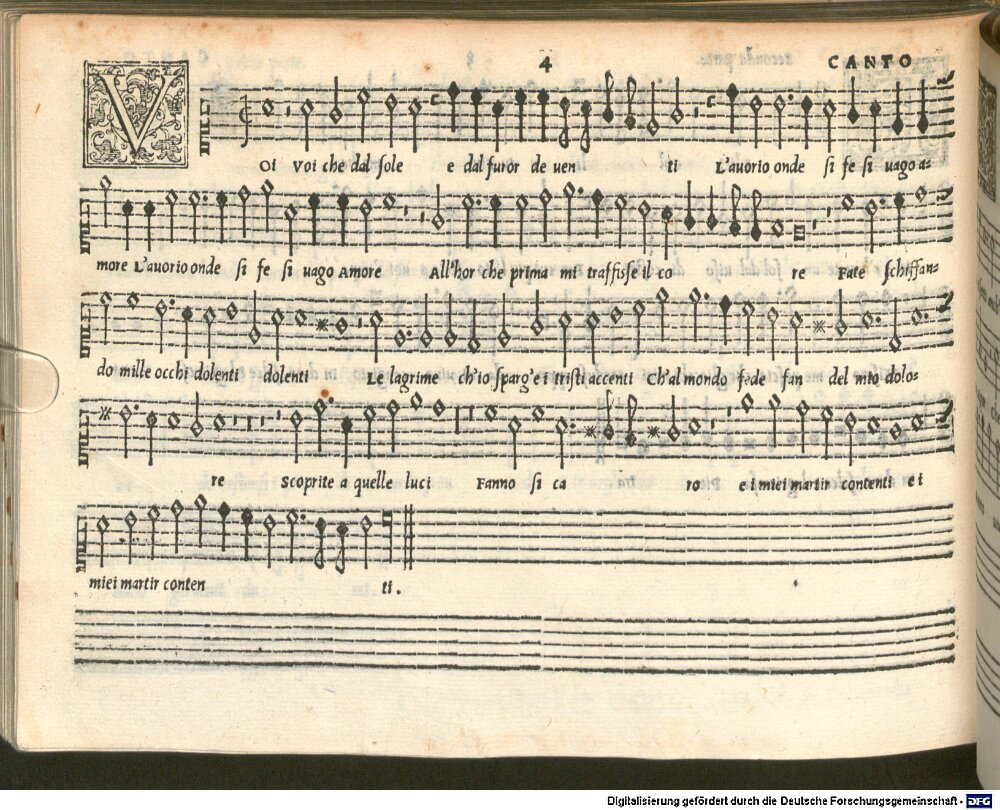 4 CANTO
V
Oi Voi che dal sole e dal furor de uen ti L'auorio onde si fe si uago a-
more L'auorio onde si fe si uago Amore All'hor che prima mi traffisse il co re Fate schiffan-
do mille occhi dolenti dolenti Le lagrime ch'io sparg'e i tristi accenti Ch'al mondo fede fan del mio dolo-
re Scoprite a quelle luci Fanno si ca ro e i miei martir contenti e i
miei martir conten ti.
Digitalisierung gefördert durch die Deutsche Forschungsgemeinschaft - DFG